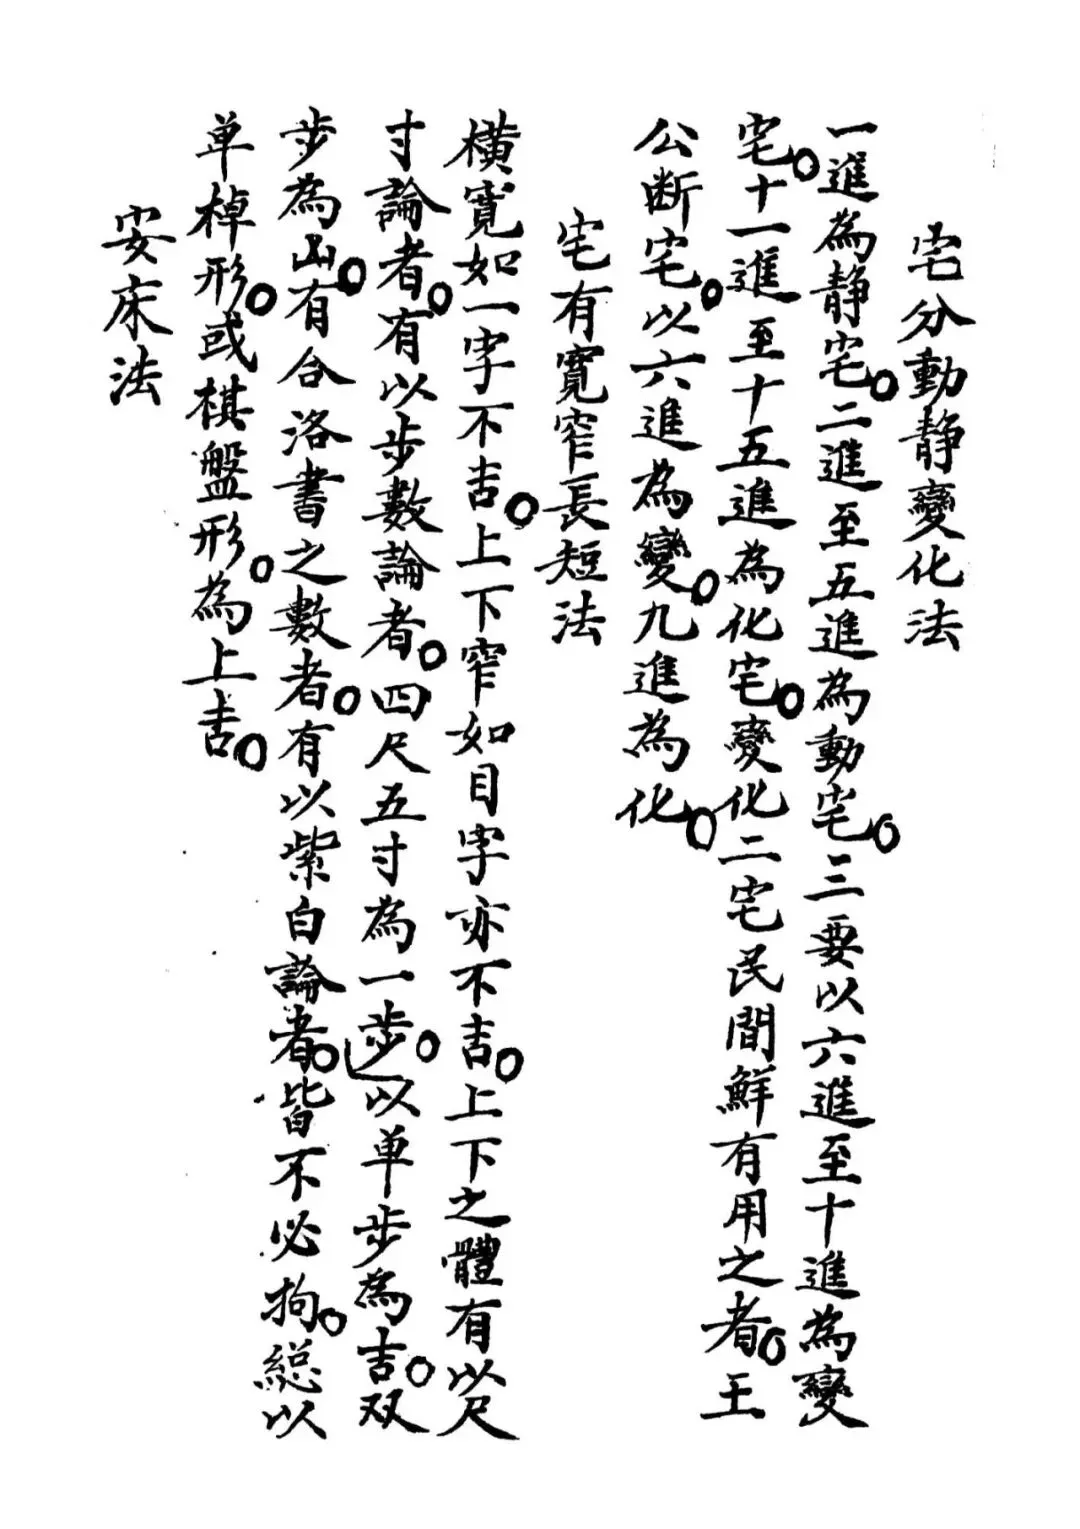 宅分動静變化法
一進為静宅。二進至五進為動宅。三要以六進至十進為變
宅。十一進至十五進為化宅。變化二宅民間鮮有用之者。王
公断宅。以六進為變。九進為化。
宅有寬窄長短法
橫寬如一字不吉。上下窄如目字亦不吉。上下之體有以尺
寸論者。有以步數論者。四尺五寸為一步。以单步為吉。双
步為凶。有合洛書之數者。有以紫白論者。皆不必拘。総以
单棹形。或棋盤形。為上吉。
安床法